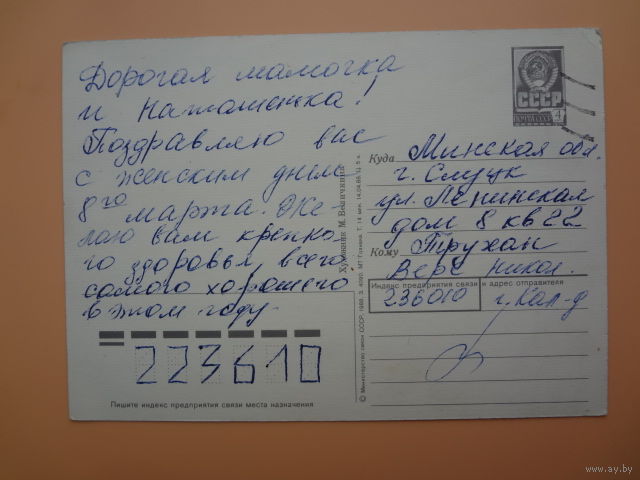 Дорогая мамочка
и Наташенька!
Поздравляю вас
с женским днем
8го марта. Же-
лаю вам крепко-
го здоровья, всего
самого хорошего
в этом году.
223610
Пишите индекс предприятия связи места назначения
Художник М. Величкина
© Министерство связи СССР, 1986.
СССР
ПОЧТА СССР
4
Куда Минская обл.
г. Слуцк
ул. Ленинская
дом 8 кв 22
Кому Трухан
Вере Никол.
Индекс предприятия связи и адрес отправителя
236010 г. Кал-д
www.ay.by